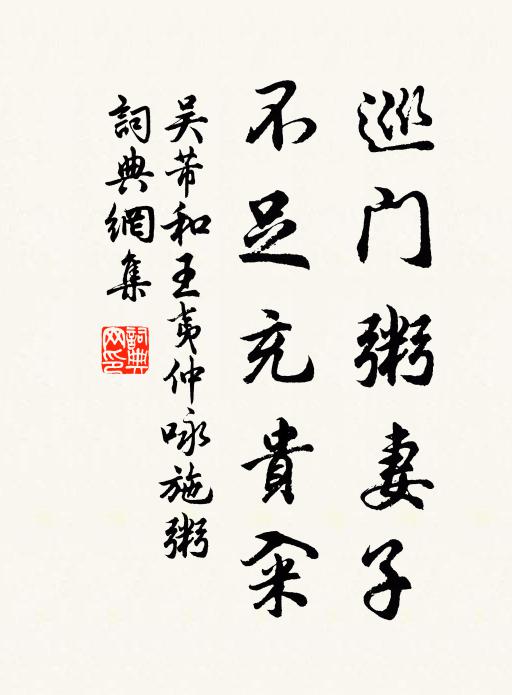 巡门粥妻子
不足充貴籴
吴芾和王夷仲咏施粥
詞典網集
詞典网印